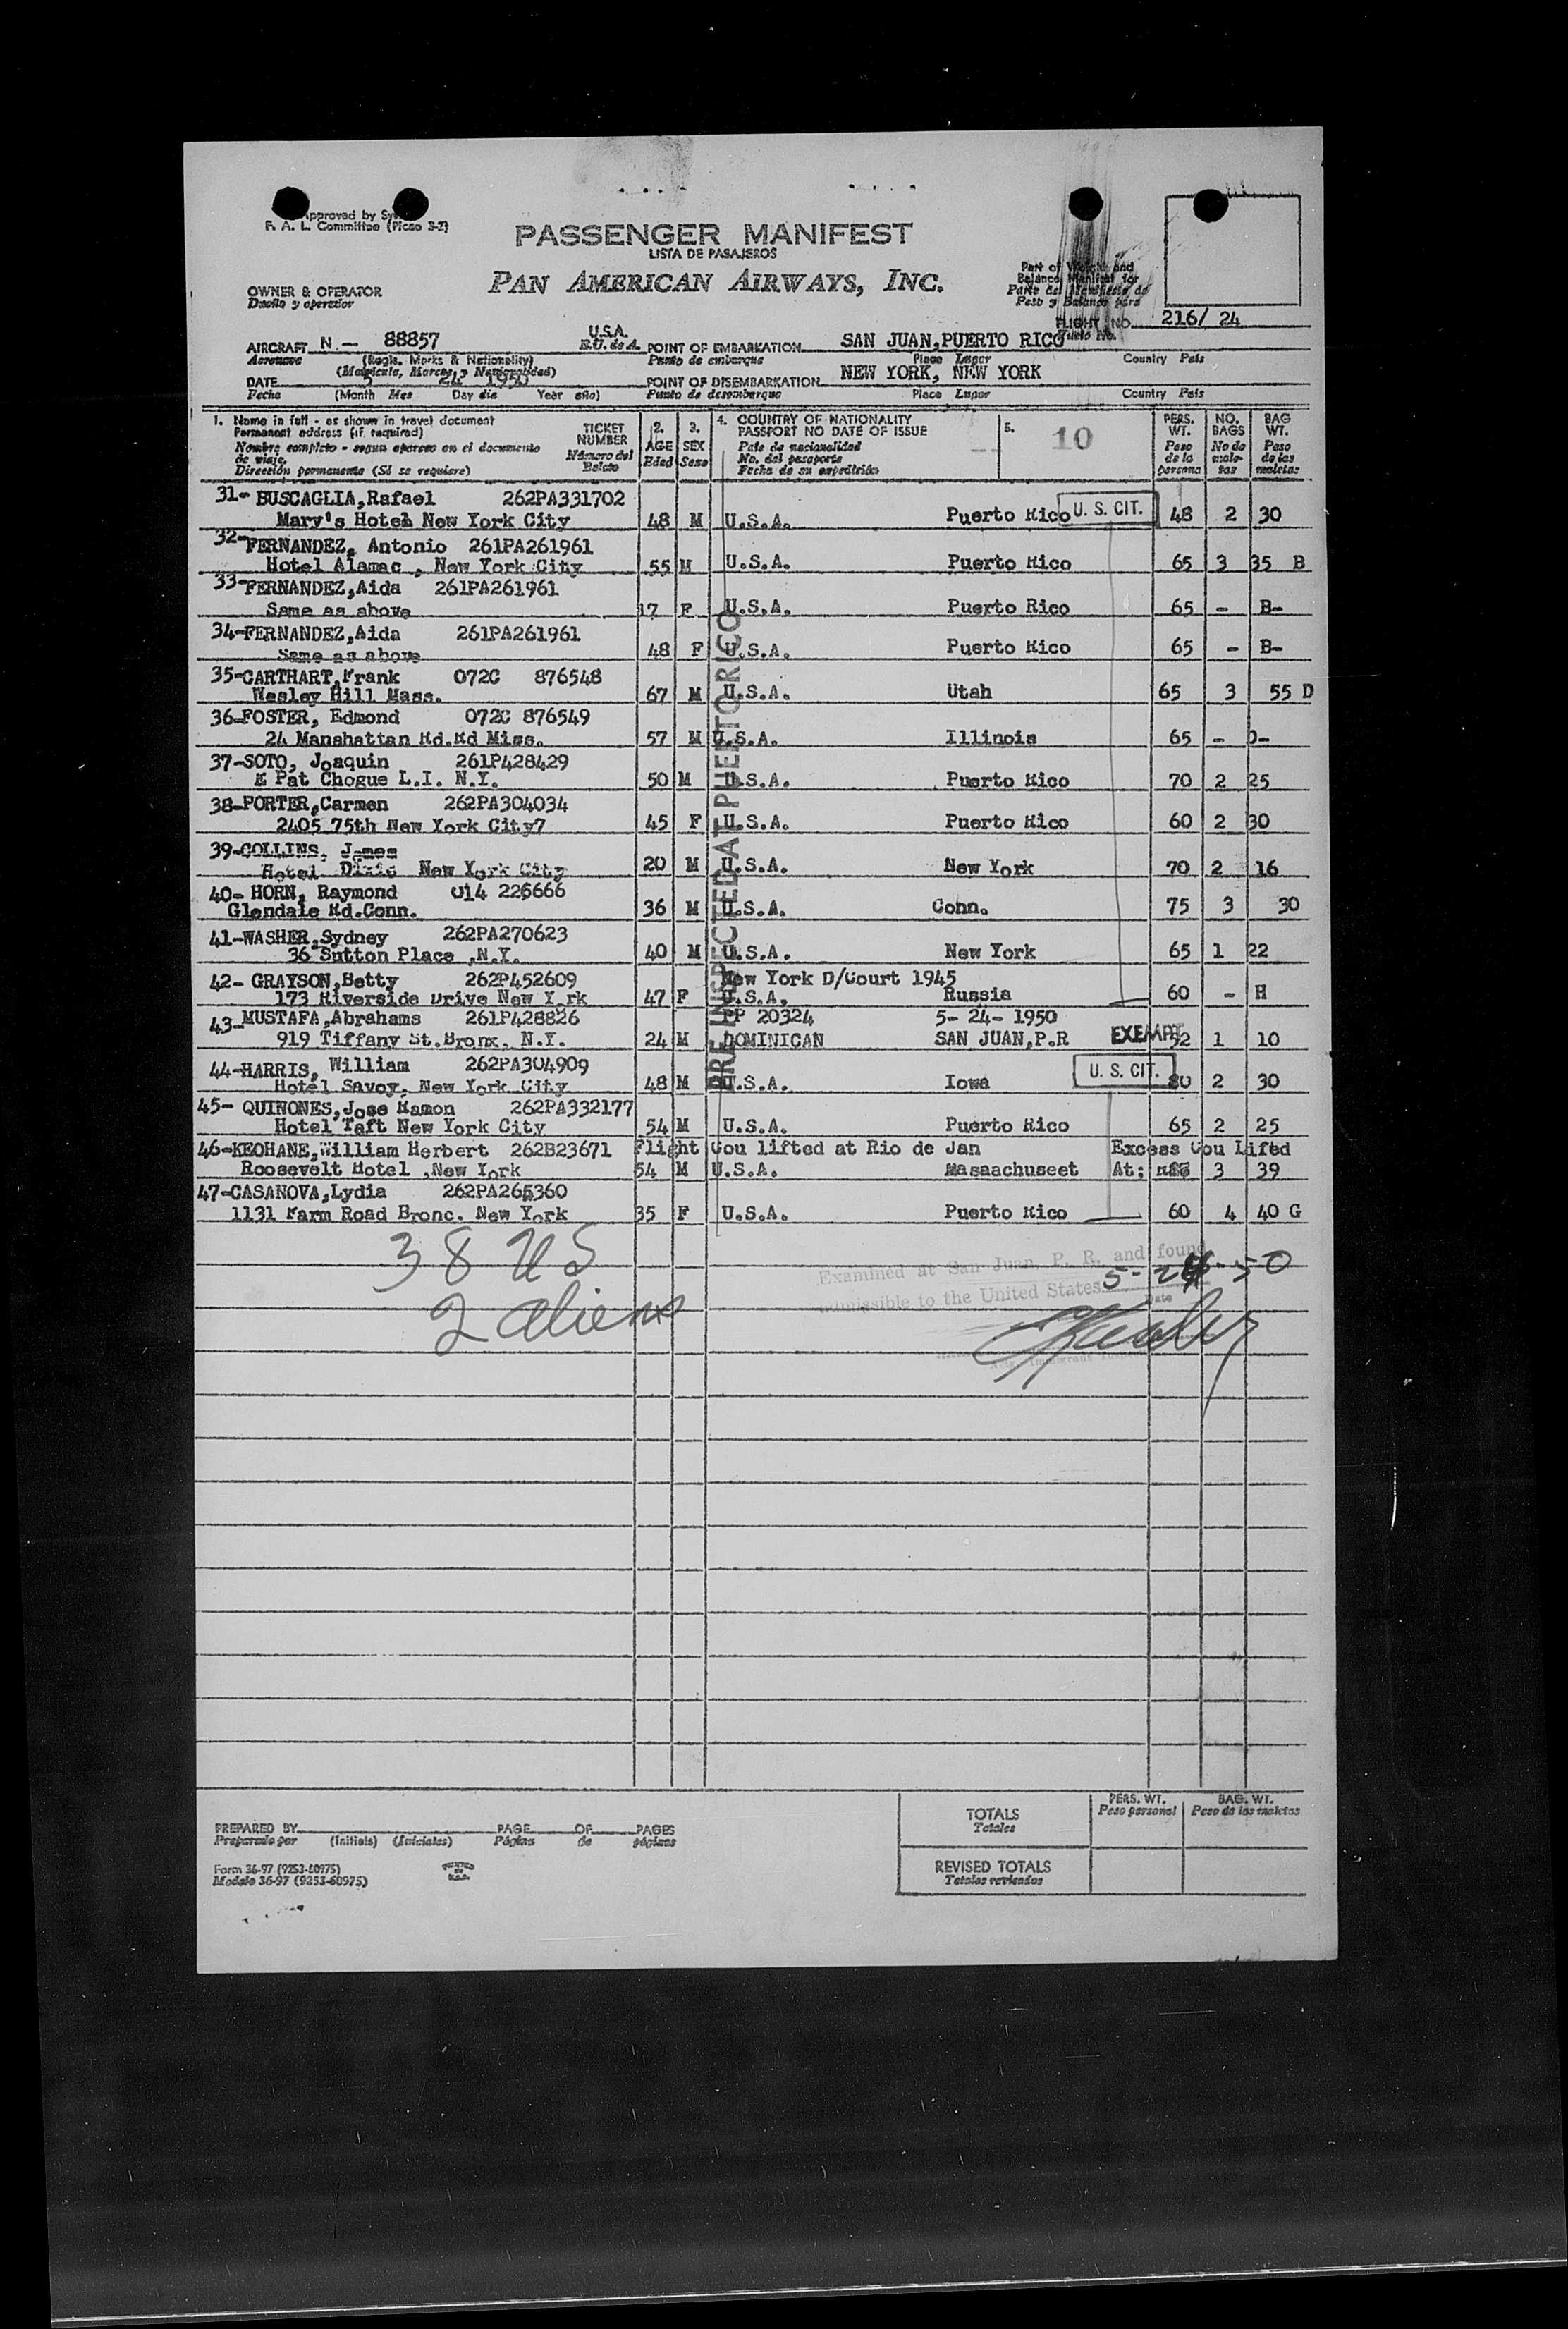 Approved by
F. A. L. Committee (Picao 3-2)
PASSENGER MANIFEST
LISTA DE PASAJEROS
PAN AMERICAN AIRWAYS, INC.
OWNER & OPERATOR
Dueño y operador
Part of Weight and
Balance Manifest for
Parte del Manifiesto de
Peso y Balance para
FLIGHT NO. 216/ 24
Vuelo No.
AIRCRAFT N - 88857 U.S.A. POINT OF EMBARKATION SAN JUAN,PUERTO RICO
Aeronave (Regis. Marks & Nationality) E.U. de A. Punto de embarque Place Lugar Country Pais
(Matricula, Marcas y Nacionalidad)
DATE 5 24 1950 POINT OF DISEMBARKATION NEW YORK, NEW YORK
Fecha (Month Mes Day dia Year año) Punto de desembarque Place Lugar Country Pais
1. Name in full - as shown in travel document
Permanent address (if required)
Nombre completo - segun aparece en el documento
de viaje.
Dirección permanente (Si se requiere)
TICKET
NUMBER
Número del
Boleto
2.
AGE
Edad
3.
SEX
Sexo
4. COUNTRY OF NATIONALITY
PASSPORT NO DATE OF ISSUE
Pais de nacionalidad
No. del pasaporte
Fecha de su expedición
5.
10
PERS.
WT.
Peso
de la
persona
NO.
BAGS
No de
male-
tas
BAG
WT.
Peso
de las
maletas
31- BUSCAGLIA,Rafael 262PA331702
Mary's Hotel New York City 48 M U.S.A. Puerto Rico U. S. CIT. 48 2 30
32-FERNANDEZ, Antonio 261PA261961
Hotel Alamac , New York City 55 M U.S.A. Puerto Rico 65 3 35 B
33-FERNANDEZ,Aida 261PA261961
Same as above 17 F U.S.A. Puerto Rico 65 - B-
34-FERNANDEZ,Aida 261PA261961
Same as above 48 F U.S.A. Puerto Rico 65 - B-
35-CARTHART,Frank 072C 876548
Wesley Hill Mass. 67 M U.S.A. Utah 65 3 55 D
36-FOSTER, Edmond 072C 876549
24 Manahattan Rd.Rd Miss. 57 M U.S.A. Illinois 65 - D-
37-SOTO, Joaquin 261P428429
E Pat Chogue L.I. N.Y. 50 M U.S.A. Puerto Rico 70 2 25
38-PORTER,Carmen 262PA304034
2405 75th New York City7 45 F U.S.A. Puerto Rico 60 2 30
39-COLLINS, James
Hotel Dixie New York City 20 M U.S.A. New York 70 2 16
40- HORN, Raymond 014 226666
Glendale Rd.Conn. 36 M U.S.A. Conn. 75 3 30
41-WASHER,Sydney 262PA270623
36 Sutton Place ,N.Y. 40 M U.S.A. New York 65 1 22
42- GRAYSON,Betty 262P452609 New York D/Court 1945
173 Riverside Drive New Y rk 47 F U.S.A. Russia 60 - H
43-MUSTAFA,Abrahams 261P428826 PP 20324 5- 24- 1950
919 Tiffany St.Bronx. N.Y. 24 M DOMINICAN SAN JUAN,P.R EXEMPT 1 10
44-HARRIS, William 262PA304909
Hotel Savoy, New York City 48 M U.S.A. Iowa U. S. CIT. 80 2 30
45- QUINONES,Jose Ramon 262PA332177
Hotel Taft New York City 54 M U.S.A. Puerto Rico 65 2 25
46-KEOHANE,William Herbert 262B23671 Flight Cou lifted at Rio de Jan Excess Cou Lifed
Roosevelt Hotel ,New York 54 M U.S.A. Masaachuseet At: 3 39
47-CASANOVA,Lydia 262PA265360
1131 Farm Road Bronc. New York 35 F U.S.A. Puerto Rico 60 4 40 G
PRE INSPECTED AT PUERTO RICO
38 US
2 aliens
Examined at San Juan, P. R. and found
admissible to the United States 5-24-50
Date
TOTALS
Totales
PERS. WT.
Peso personal
BAG. WT.
Peso de las maletas
REVISED TOTALS
Totales revisados
PREPARED BY PAGE OF PAGES
Preparado por (Initials) (Iniciales) Página de páginas
Form 36-97 (9253-60975)
Modelo 36-97 (9253-60975)
PRINTED
IN
U.S.A.